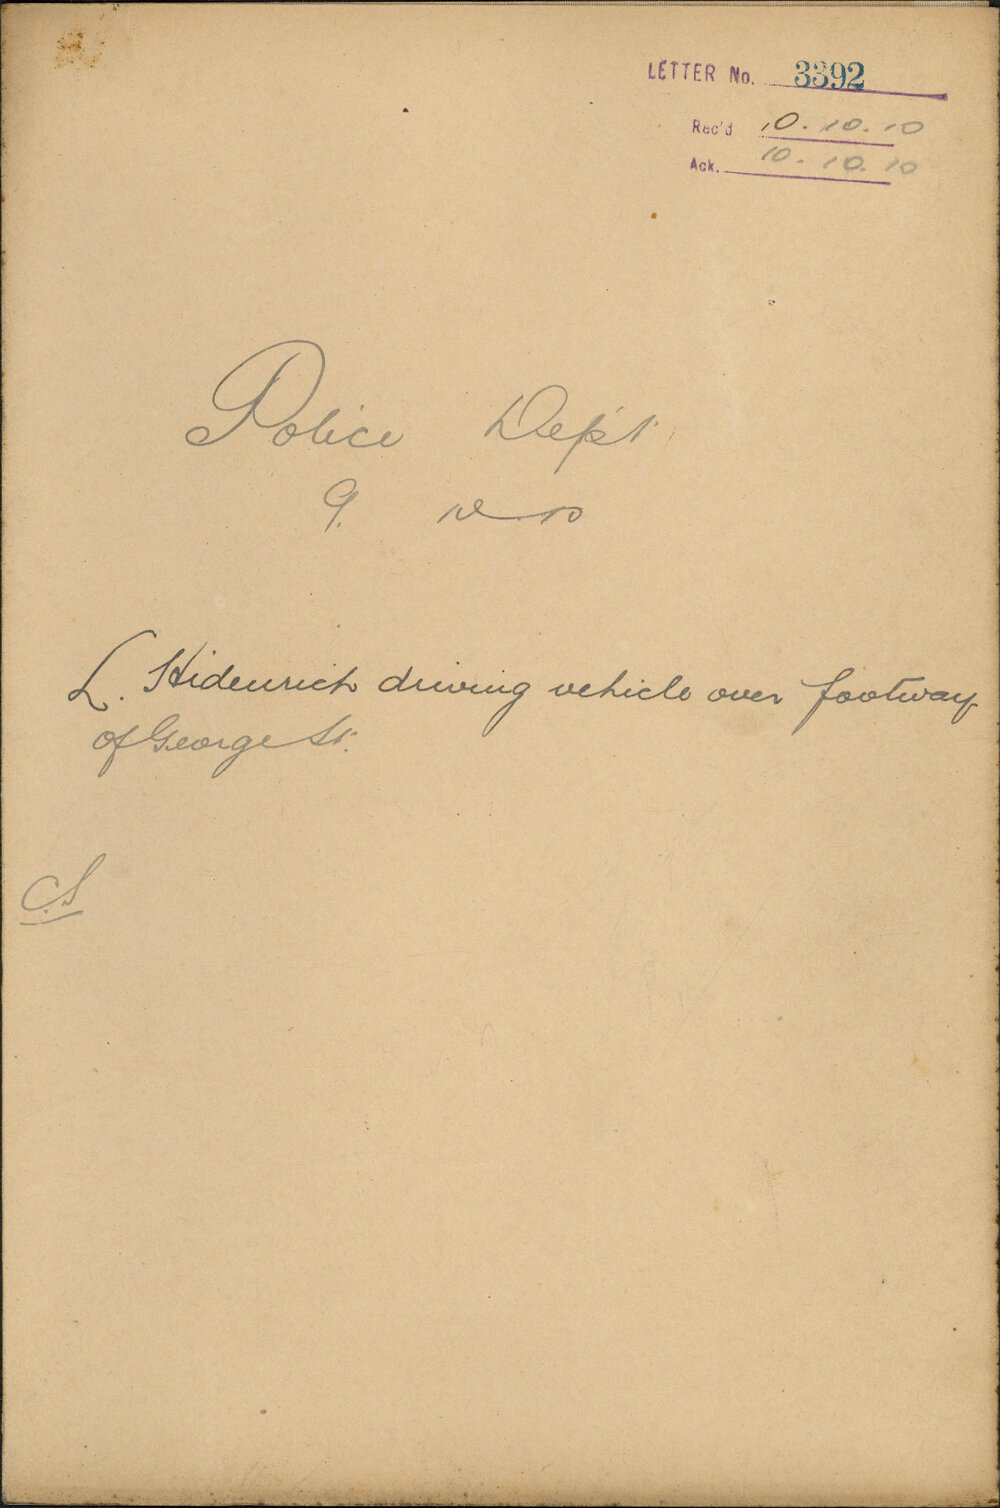 LETTER No. 3392
Rec'd 10.10.10
Ack. 10.10.10
Police Dept
9. 10. 10
L. Hidenrich driving vehicle over footway
of George St.
C.S